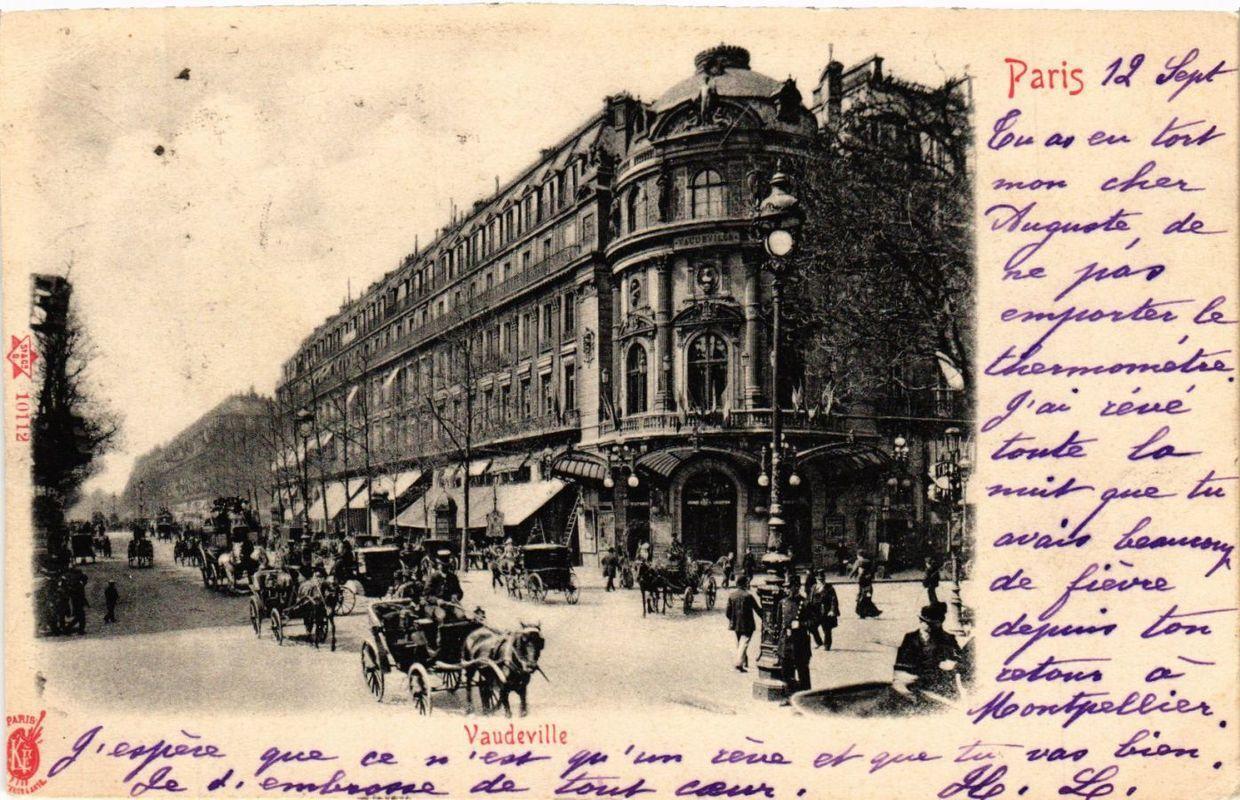 Paris 12 Sept
Tu as eu tort
mon cher
Auguste, de
ne pas
emporter, le
thermomètre.
J'ai rêvé
toute la
nuit que tu
avais beaucoup
de fièvre
depuis ton
retour à
Montpellier.
J'espère que ce n'est qu'un rêve et que tu vas bien.
Je t'embrasse de tout cœur. H. L.
Vaudeville
VAUDEVILLE
10112
PARIS